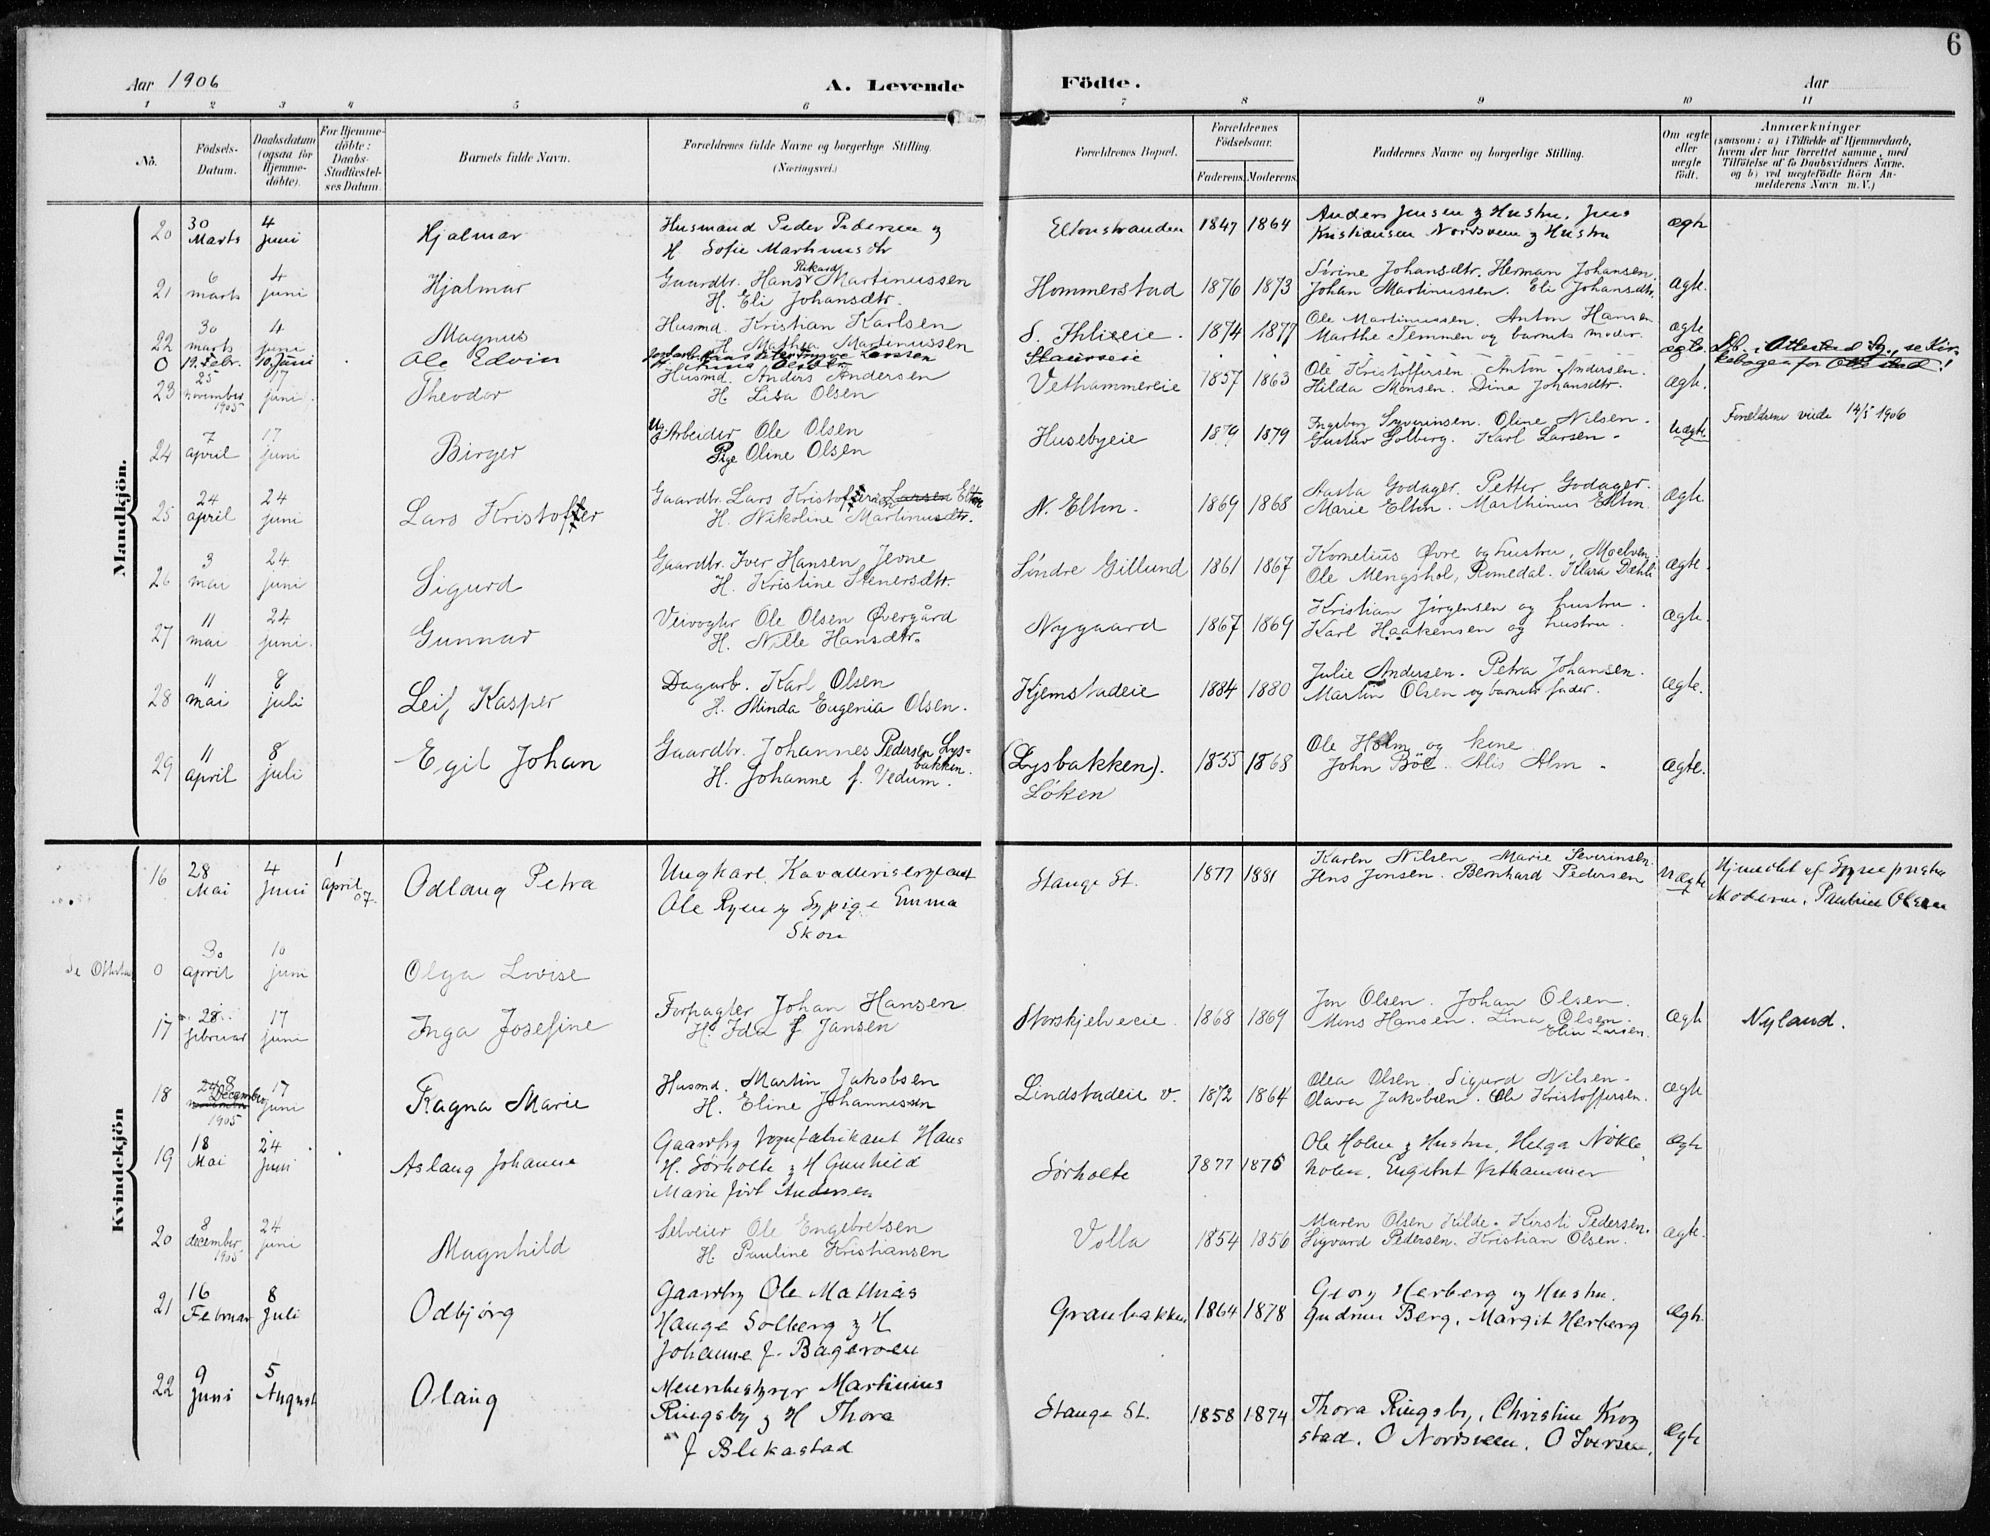 6
Aar 1906
A. Levende Födte.
Aar
1 2 3 4 5 6 7 8 9 10 11
No.
Födsels-Datum.
Daabsdatum (ogsaa for Hjemme-döbte).
For Hjemme-döbte: Daabs-Stadfæstel-ses Datum
Barnets fulde Navn.
Forældrenes fulde Navne og borgerlige Stilling. (Næringsvei.)
Forældrenes Bopæl.
Forældrenes Födselsaar.
Faderens. Moderens.
Faddernes Navne og borgerlige Stilling.
Om ægte eller uægte födt.
Anmærkninger
(saasom: a) i Tilfælde af Hjemmedaab,
hvem der har forrettet samme, med
Tilföielse af to Daabsvidners Navne,
og b) ved uægtefödte Börn An-
melderens Navn m. V.)
Mandkjön.
20 30 Marts 4 Juni Hjalmar Husmand Peder Pedersen og
H Sofie Martinusdtr
Eltonstranden 1847 1864 Anders Jensen og Hustru, Jens
Kristiansen Nordsveen og Hustru
Ægte
21 6 marts 4 juni Hjalmar Gaardbr. Hans Rikard Martinussen
H. Eli Johansdtr.
Hommerstad 1876 1873 Sørine Johansdtr. Herman Johansen.
Johan Martinussen. Eli Johansdtr.
Ægte.
22 30 marts 4 juni Magnus Husmd. Kristian Karlsen
H. Mathea Martinussen
1874 1877 Ole Martinussen. Anton Hansen
Marthe Temmen og barnets moder.
Ægte
0 19. Febr. 10. Juni Ole Edvin
Staurseie
ægte. Ottestad Sg., se Kir-
kebogen for Ottestad!
23 25 november 1905 17 juni. Theodor Husmd. Anders Andersen
H. Lisa Olsen
Vethammereie 1857 1863 Ole Kristoffersen. Anton Andersen.
Hilda Monsen. Dina Johansdtr.
Ægte.
24 7 april 17 juni Birger Ug. Arbeider Ole Olsen
Pige Oline Olsen
Husebyeie 1879 1879 Ingeborg Syverinsen. Oline Nilsen.
Gustav Solberg. Karl Larsen.
Uægte
Forældrene viede 14/5 1906
25 24 april 24 juni Lars Kristoffer Gaardbr. Lars Kristoffersen Larsen Elton
H. Nikoline Martinusdtr.
N. Elton. 1869 1868 Aasta Godager. Petter Godager.
Marie Elton. Marthinus Elton.
Ægte.
26 3 mai 24 juni Sigurd Gaardbr. Iver Hansen Jevne
H. Kristine Stenersdtr.
Søndre Gillund 1861 1867 Kornelius Øvre og hustru, Moelven.
Ole Mengshol, Romedal. Klara Dæhli
Ægte.
27 11 mai 24 juni. Gunnar Veivogter Ole Olsen Øvergård
H. Nille Hansdtr.
Nygaard 1867 1869 Kristian Jørgensen og hustru.
Karl Haakensen og hustru.
Ægte.
28 11 mai 8 juli Leif Kasper Dagarb. Karl Olsen
H. Minda Eugenia Olsen.
Kjemstadeie 1884 1880 Julie Andersen. Petra Johansen.
Martin Olsen og barnets fader.
Ægte.
29 11 april 8 juli Egil Johan Gaardbr. Johannes Pedersen Lys-
bakken.
H. Johanne f. Vedum.
(Lysbakken).
Løken
1855 1868 Ole Holm og kone
John Böe. Alis Alm
Ægte.
Kvindekjön
16 28 Mai 4 Juni 1 April 07. Odlaug Petra Ungkarl, Kavallerisergeant
Ole Ryen og Sypige Emma
Skou
Stange St. 1877 1881 Karen Nilsen, Marie Severinsen.
Jens Jensen. Bernhard Pedersen
Uægte
Moderen,
0 30 april 10 juni Olga Lovise
17 28 februar 17 juni Inga Josefine Forpagter Johan Hansen
H. Ida f Jansen
Storskjelveeie. 1868 1869 Jon Olsen. Johan Olsen.
Mons Hansen. Lina Olsen.
Elin Larsen.
Ægte
Nyland.
18 8 December november 1905 17 juni Ragna Marie Husmd. Martin Jakobsen
H. Eline Johannessen
Lindstadeie v. 1872 1864 Olea Olsen. Sigurd Nilsen.
Olava Jakobsen. Ole Kristoffersen.
Ægte
19 18 Mai 24 Juni Aslaug Johanne Gaardbr Vognfabrikant Hans
H. Sørholte og H Gunhild
Marie født Andersen
Sørholte 1877 1876 Ole Holm og Hustru, Helga Nøkle
holm, Engebret Vethammer
Ægte
20 8 december 1905 24 juni Magnhild Selveier Ole Engebretsen
H. Pauline Kristiansen
Volla 1854 1856 Maren Olsen Kilde. Kirsti Pedersen.
Sigvard Pedersen. Kristian Olsen.
Ægte.
21 16 Februar 8 Juli Odbjørg Gaardbr Ole Mathias
Hauge Solberg og H
Johanne f. Bageroen
Granbakken 1864 1878 Georg Herberg og Hustru.
Gudrun Berg, Margit Herberg
Ægte.
22 9 Juni 5 August Olaug Meieribestyrer Martinius
Ringsby og H Thora
f Blikastad
Stange St. 1858 1874 Thora Ringsby, Christine Krog
stad, O Nordsveen, O Iversen,
Ægte